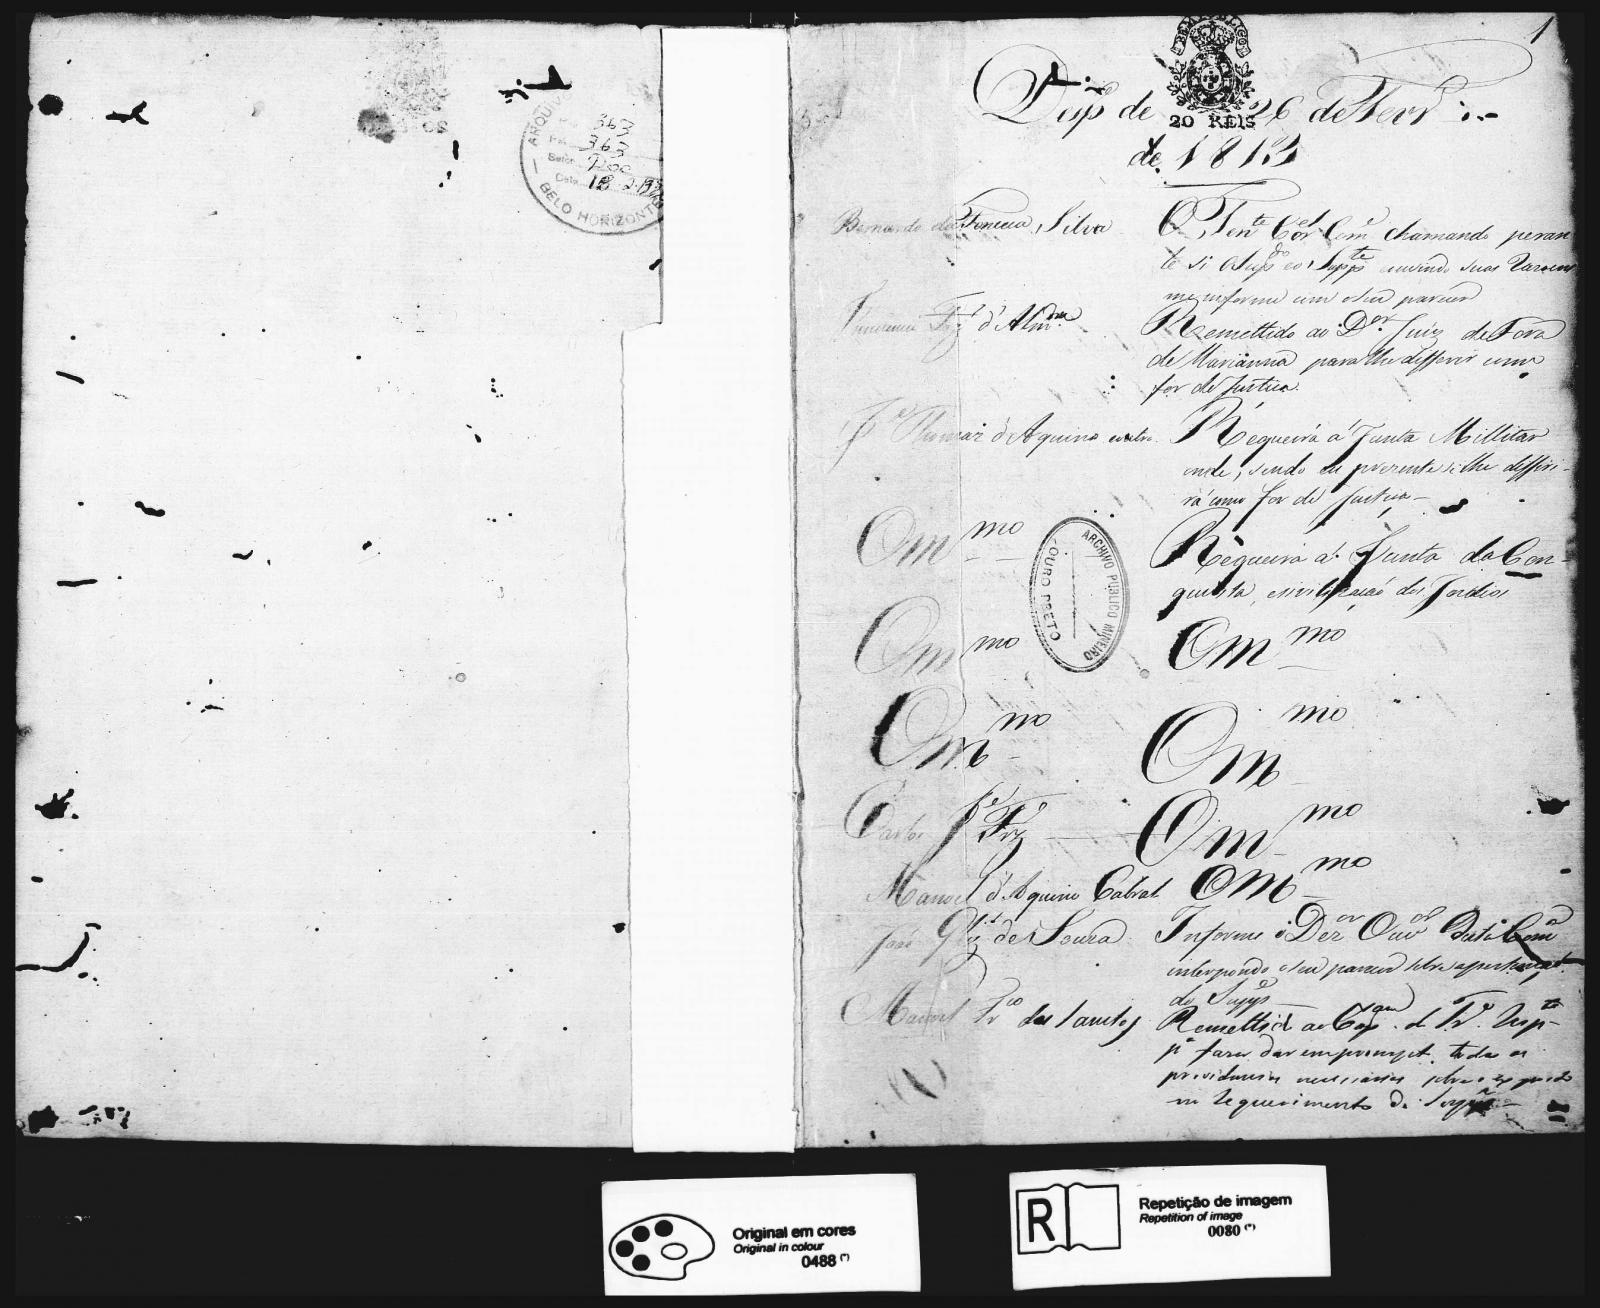 ARQUIVO
363
363
Setor 9200
Data 18.2.
BELO HORIZONTE
1
20 REIS
Desp.º de 26 de Fevr.º
de 181
Bernardo da Fonceca Silva
O Ten.te Cor.el Com.e chamando peran
te si o Sup.do eo Supp.te ouvindo suas razoens
me informe com o seu parecer
Frz' d'Alm.da
Remettido ao D.or Juiz de Fora
de Marianna para lhe defferir como
for de Justica.
J.e Thomaz d'Aquino e outro
Requeira á Junta Millitar
onde, sendo eu prezente se lhe differi-
rá como for de Justica
O m.mo
Requeira á Junta da Con-
quista, e civilização dos Indios
ARCHIVO PUBLICO MINEIRO
OURO PRETO
O m.mo
O m.mo
O m.mo
O m.mo
Carlos J.e Frz'
O m.mo
Manoel d'Aquino Cabral
O m.mo
José Glz' de Souza
Informe o Dez.or Ouv.or desta Com.ca
interpondo o seu parecer sobre a
do Supp.e
Manoel Fr.co dos Santos
Remettido ao Cap.am d
p.a fazer dar em prompt. todas as
providencias necessarias sobre o exposto
no requerimento do Supp.e
Original em cores
Original in colour
0488 (*)
R
Repetição de imagem
Repetition of image
0080 (*)